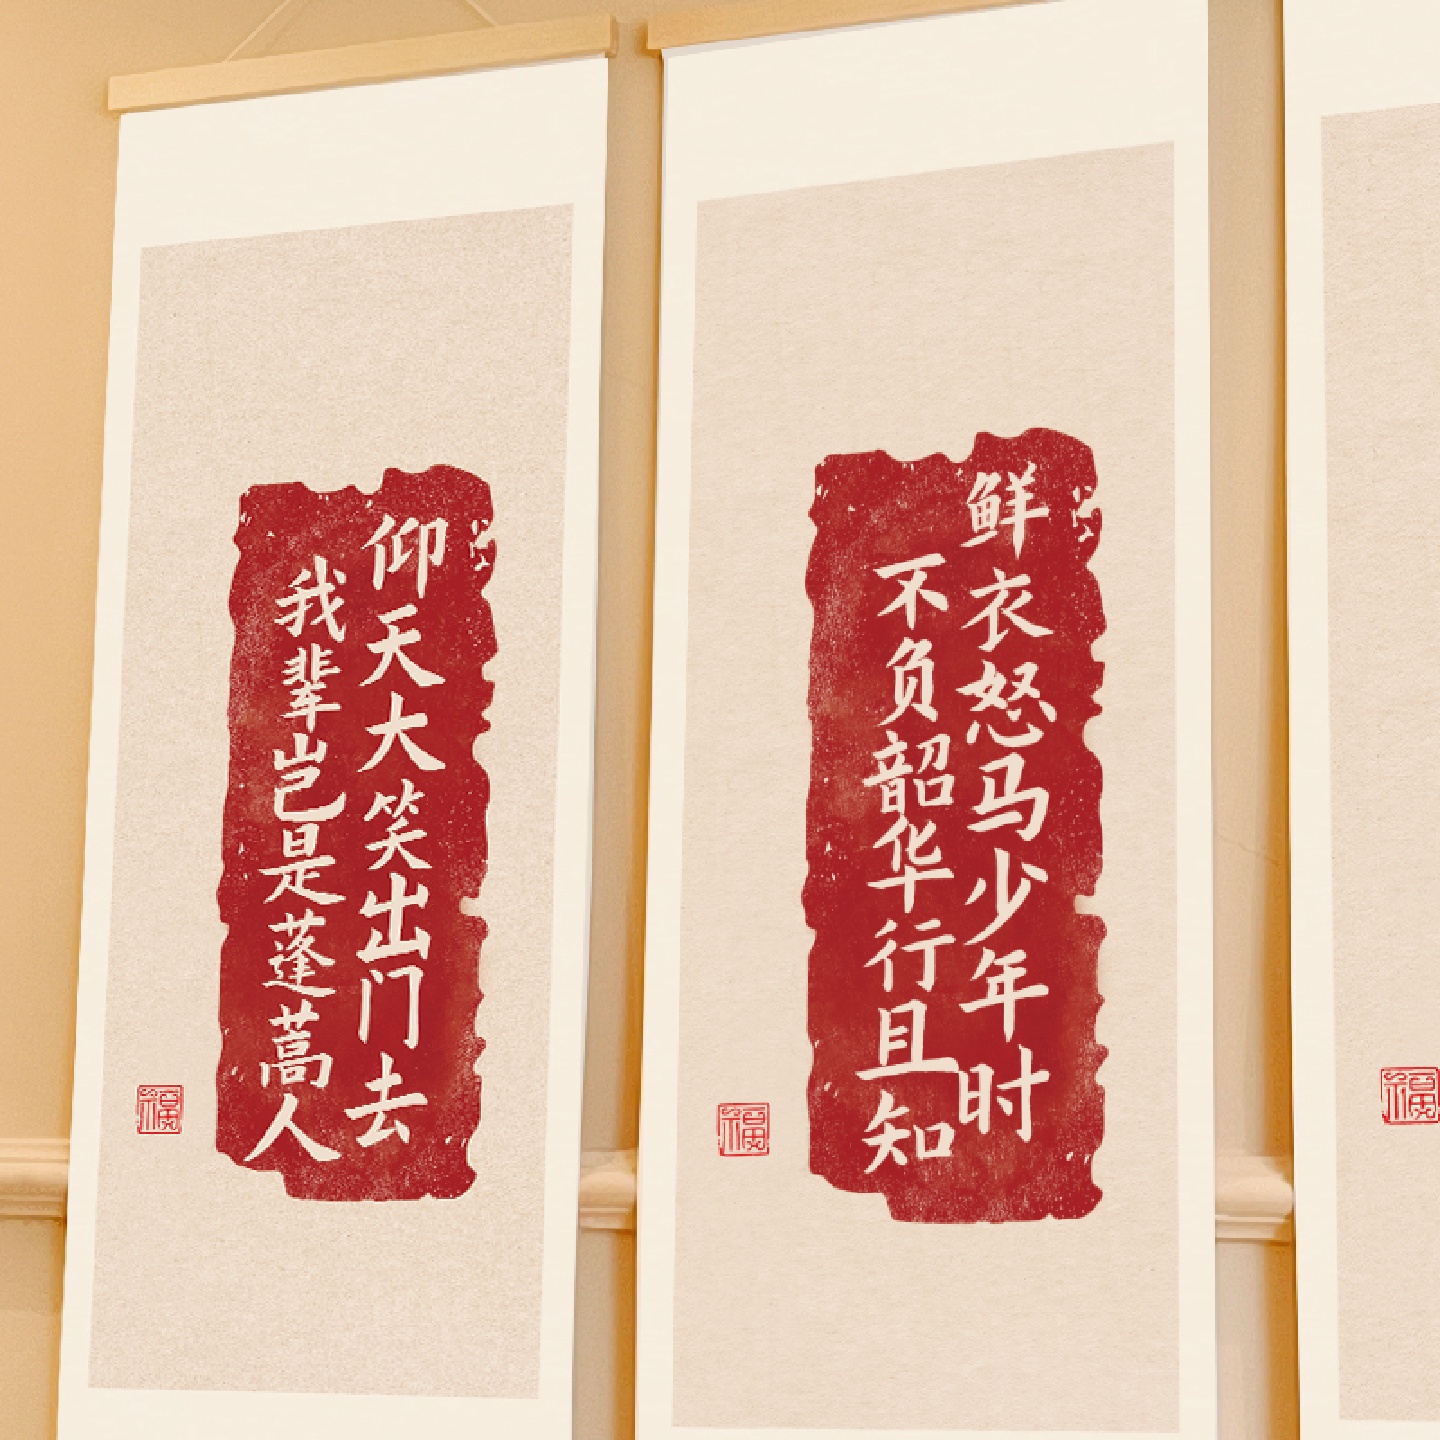 仰天大笑出门去
我辈岂是蓬蒿人
福
鲜衣怒马少年时
不负韶华行且知
福
福